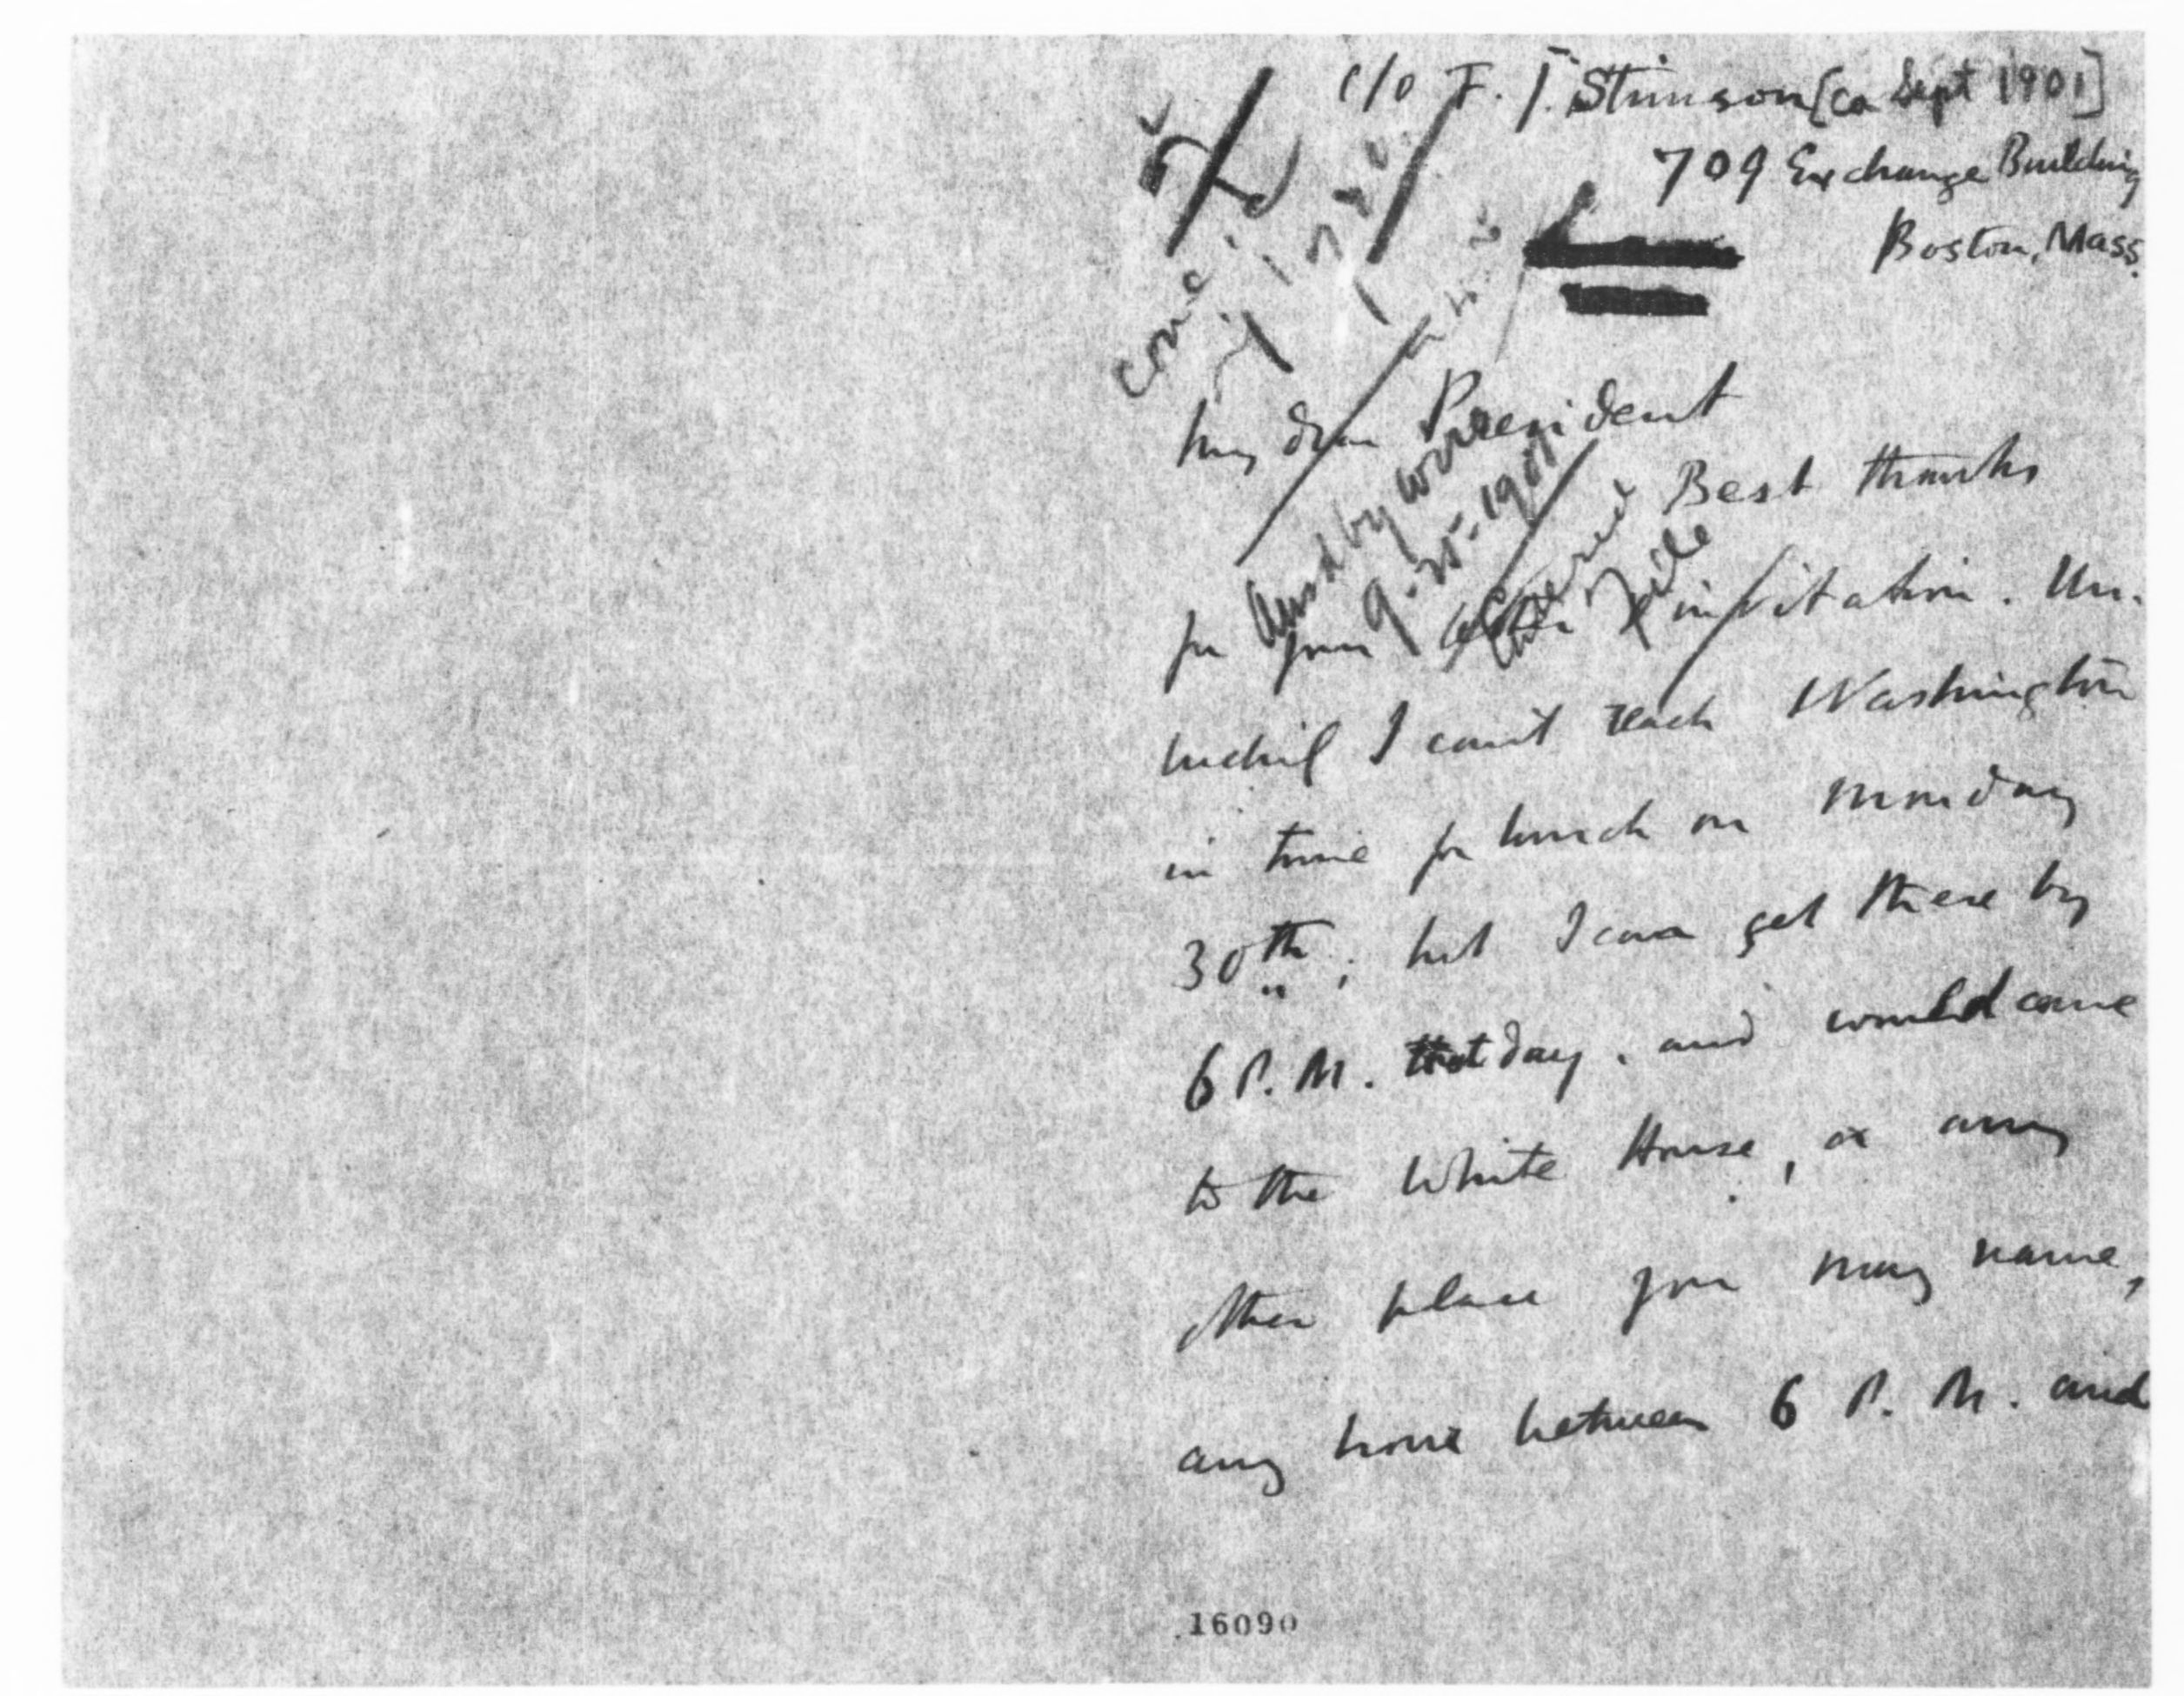 c/o F. J. Stimson [ca Sept 1901]
709 Exchange Building
Boston, Mass.
come
My dear President
Ansd by wire
9-25-1901
File
Best thanks
for your invitation. Un-
luckily I can't reach Washington
in time for lunch on Monday
30th; but I can get there by
6 P.M. that day, and would come
to the White House, or any
other place you may name,
any hour between 6 P.M. and
16090